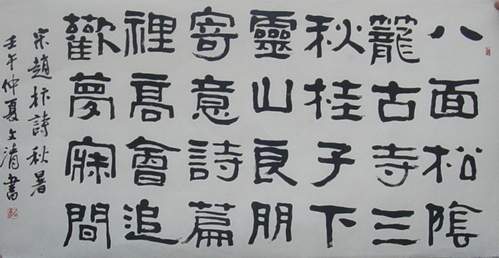 八面松陰
籠古寺三
秋桂子下
靈山良朋
寄意詩篇
裡高會追
歡夢寐間
宋趙抃詩秋暑
壬午仲夏文清書